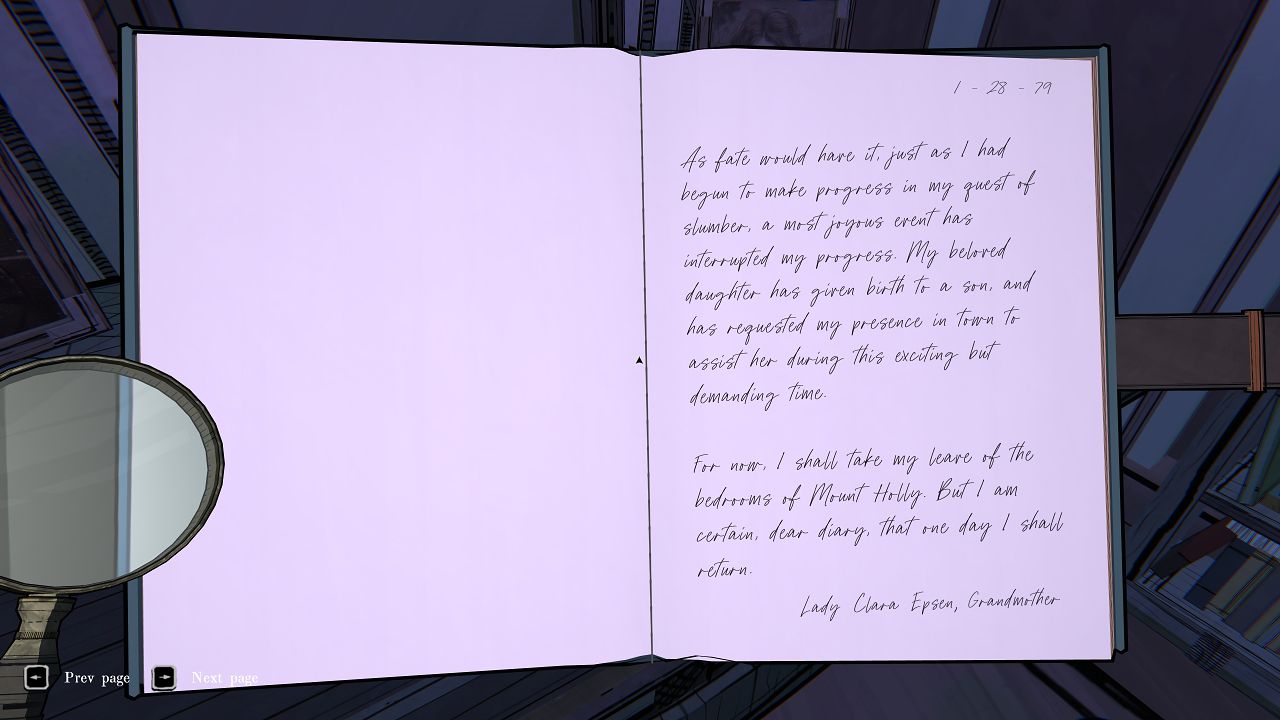 1 - 28 - 79
As fate would have it, just as I had
begun to make progress in my quest of
slumber, a most joyous event has
interrupted my progress. My beloved
daughter has given birth to a son, and
has requested my presence in town to
assist her during this exciting but
demanding time.
For now, I shall take my leave of the
bedrooms of Mount Holly. But I am
certain, dear diary, that one day I shall
return.
Lady Clara Epsen, Grandmother
Prev page
Next page